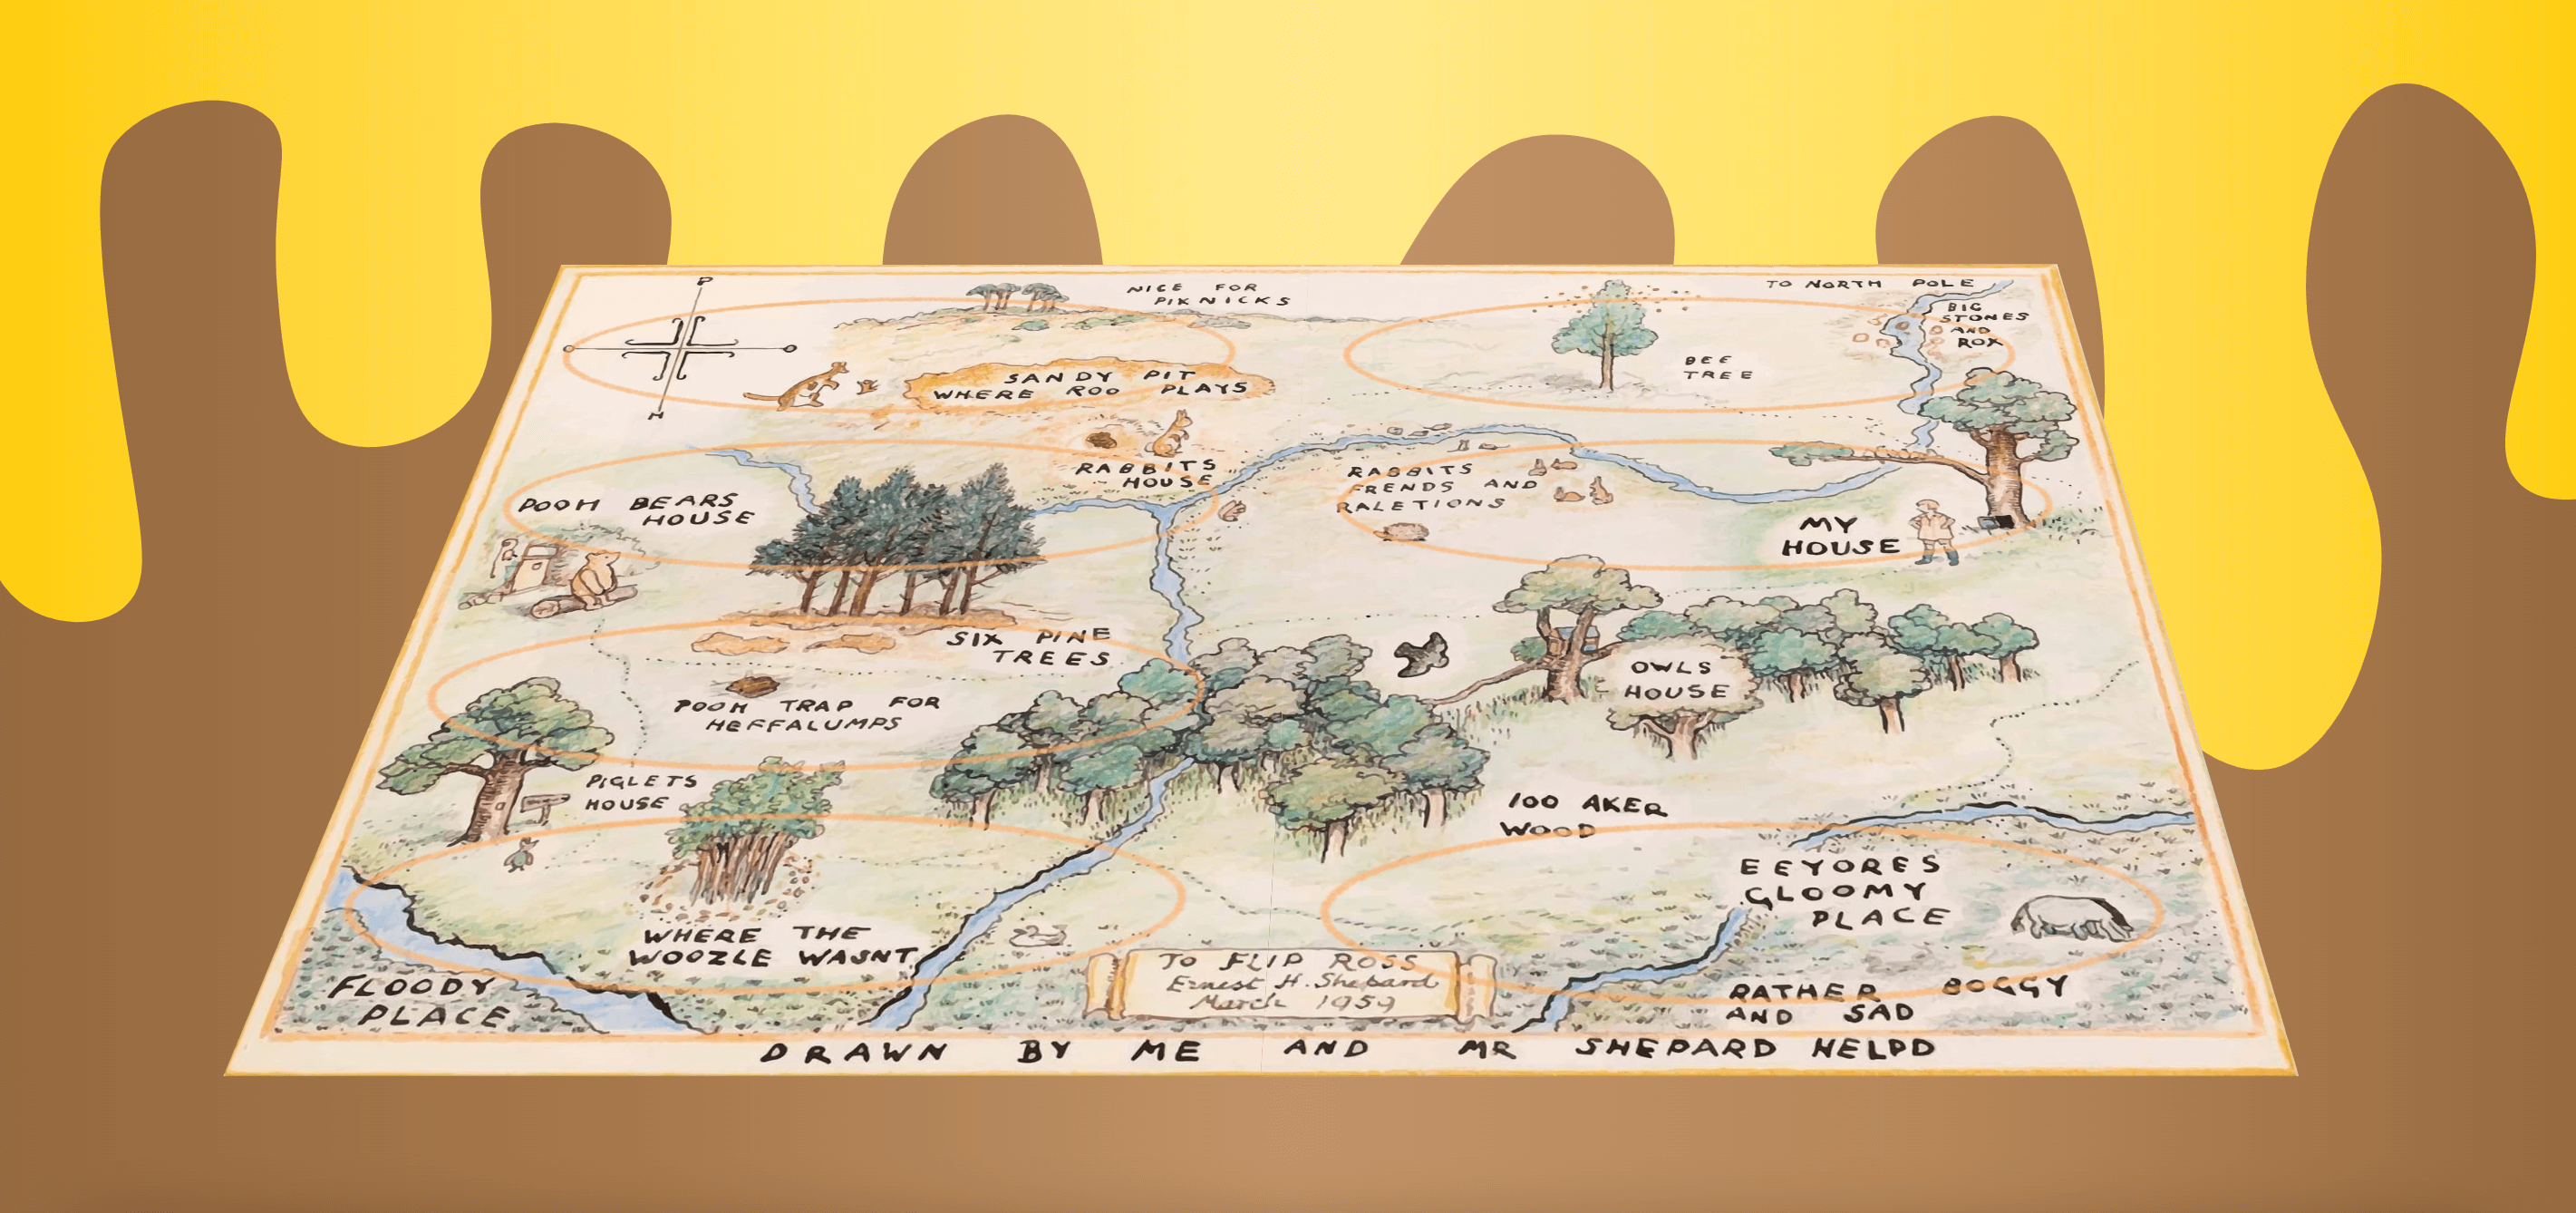 P
NICE FOR
PIKNICKS
TO NORTH POLE
BIG
STONES
AND
ROX
O
O
H
BEE
TREE
SANDY PIT
WHERE ROO PLAYS
RABBITS
HOUSE
RABBITS
FRENDS AND
RALETIONS
POOH BEARS
HOUSE
MY
HOUSE
SIX PINE
TREES
OWLS
HOUSE
POOH TRAP FOR
HEFFALUMPS
PIGLETS
HOUSE
100 AKER
WOOD
EEYORES
GLOOMY
PLACE
WHERE THE
WOOZLE WASNT
FLOODY
PLACE
TO FLIP ROSS
Ernest H. Shepard
March 1959
RATHER BOGGY
AND SAD
DRAWN BY ME AND MR SHEPARD HELPD